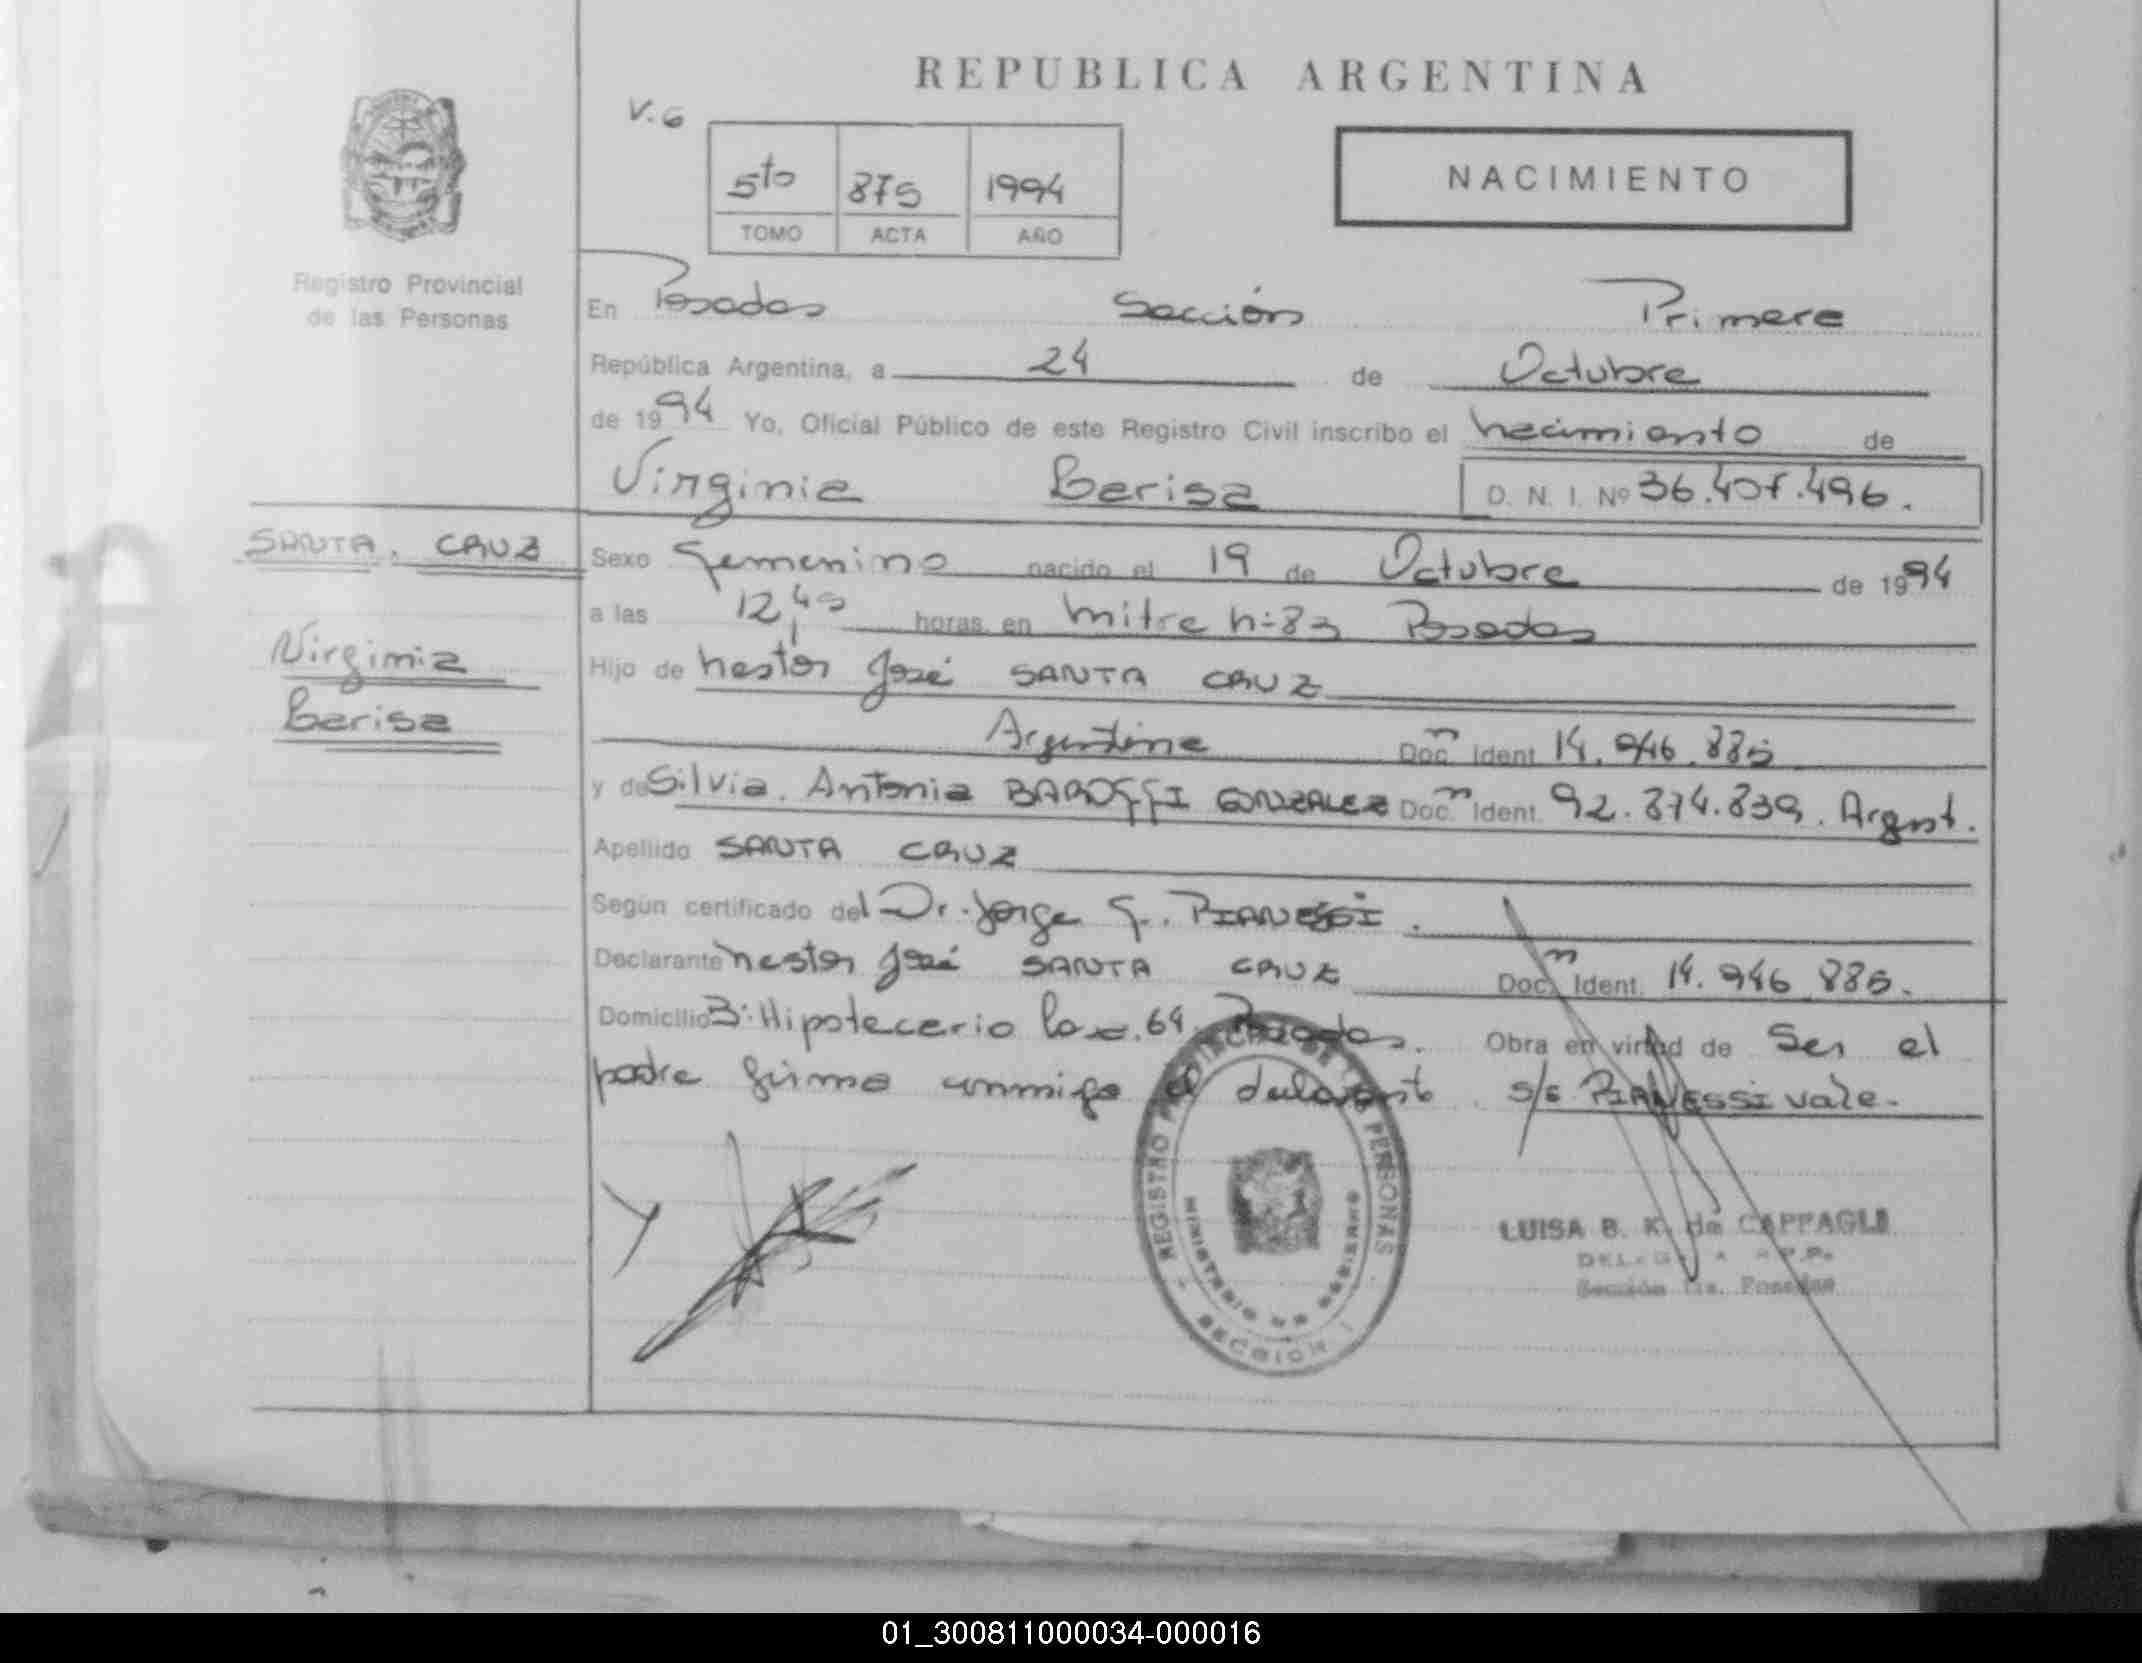 REPUBLICA ARGENTINA
V. 6
5to 875 1994
TOMO ACTA AÑO
NACIMIENTO
Registro Provincial
de las Personas
En Posadas Sección Primera
República Argentina, a 24 de Octubre
de 1994 Yo, Oficial Público de este Registro Civil inscribo el nacimiento de
Virginia Berisa D. N. I. Nº 36.407.496.
SANTA CRUZ
Virginia
Berisa
Sexo femenino nacido el 19 de Octubre de 1994
a las 12,45 horas en Mitre nº 83 Posadas
Hijo de Nestor José SANTA CRUZ
Argentina Doc. Ident. 14.946.885
y de Silvia Antonia BAROFFI GONZALEZ Doc. Ident. 92.874.839. Argent.
Apellido SANTA CRUZ
Según certificado del Dr. Jorge G. PIANESSI.
Declarante Nestor José SANTA CRUZ Doc. Ident. 14.946.885.
Domicilio Bº Hipotecario 64. Posadas. Obra en virtud de Ser el
padre firma conmigo el declarante S/E PIANESSI vale.
REGISTRO PROVINCIAL DE LAS PERSONAS
MINISTERIO DE GOBIERNO
SECCION 1
LUISA B. K. de CAPPAGLI
DELEGADA R.P.P.
Sección 1ra. Posadas
01_300811000034-000016